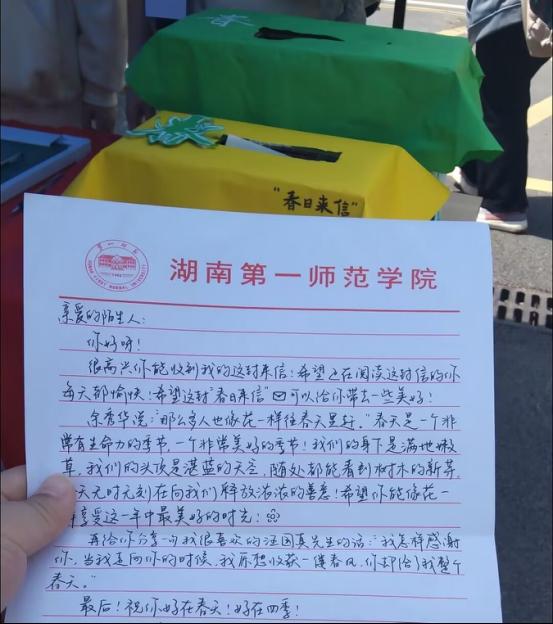 春
"春日来信"
湖南第一师范学院
亲爱的陌生人：
你好呀！
很高兴你能收到我的这封来信！希望正在阅读这封信的你
每天都愉快！希望这封"春日来信"可以给你带去一些美好！
余秀华说："那么多人也像花一样往春天里赶。"春天是一个非
常有生命力的季节，一个非常美好的季节！我们的身下是满地嫩
草，我们的头顶是湛蓝的天空，随处都能看到树木的新芽，
天无时无刻在向我们释放浓浓的善意！希望你能像花一
享受这一年中最美好的时光！
再给你分享一句我很喜欢的汪国真先生的话："我怎样感谢
你，当我走向你的时候，我原想收获一缕春风，你却给了我整个
春天。"
最后！祝你好在春天！好在四季！